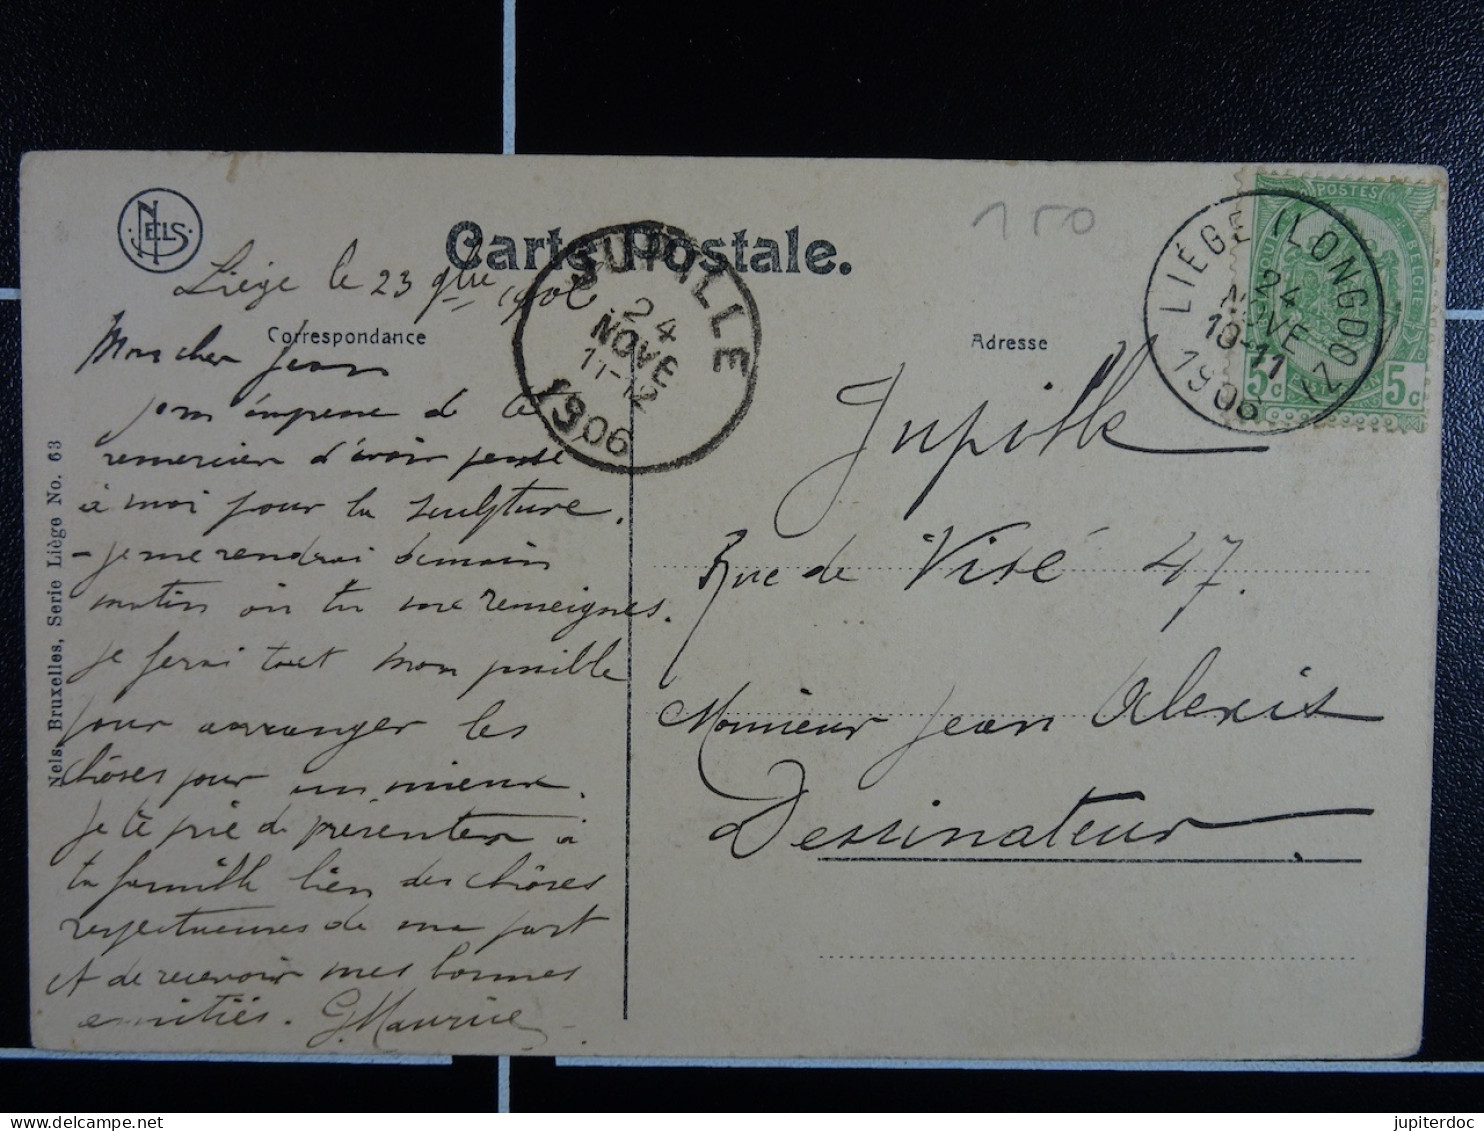 NELS
Carte Postale.
150
Liège le 23 9bre 1906
Correspondance
Adresse
JUPILLE
24
NOVE
11-12
1906
LIÉGE (LONGDOZ)
24
NOVE
10-11
1906
POSTES
5c 5c
Mon cher Jean
je m'empresse de te
remercier d'avoir pensé
à moi pour la sculpture.
- je me rendrai demain
matin où tu me renseignes.
je ferai tout mon possible
pour arranger les
chôses pour un mieux.
Je te prie de présenter à
ta famille bien des chôses
respectueuses de ma part
et de recevoir mes bonnes
amitiés. G. Maurice
Jupille
Rue de Visé 47.
Monsieur Jean Alexis
Dessinateur
Nels, Bruxelles, Serie Liège No. 63
jupiterdoc
delcampe.net